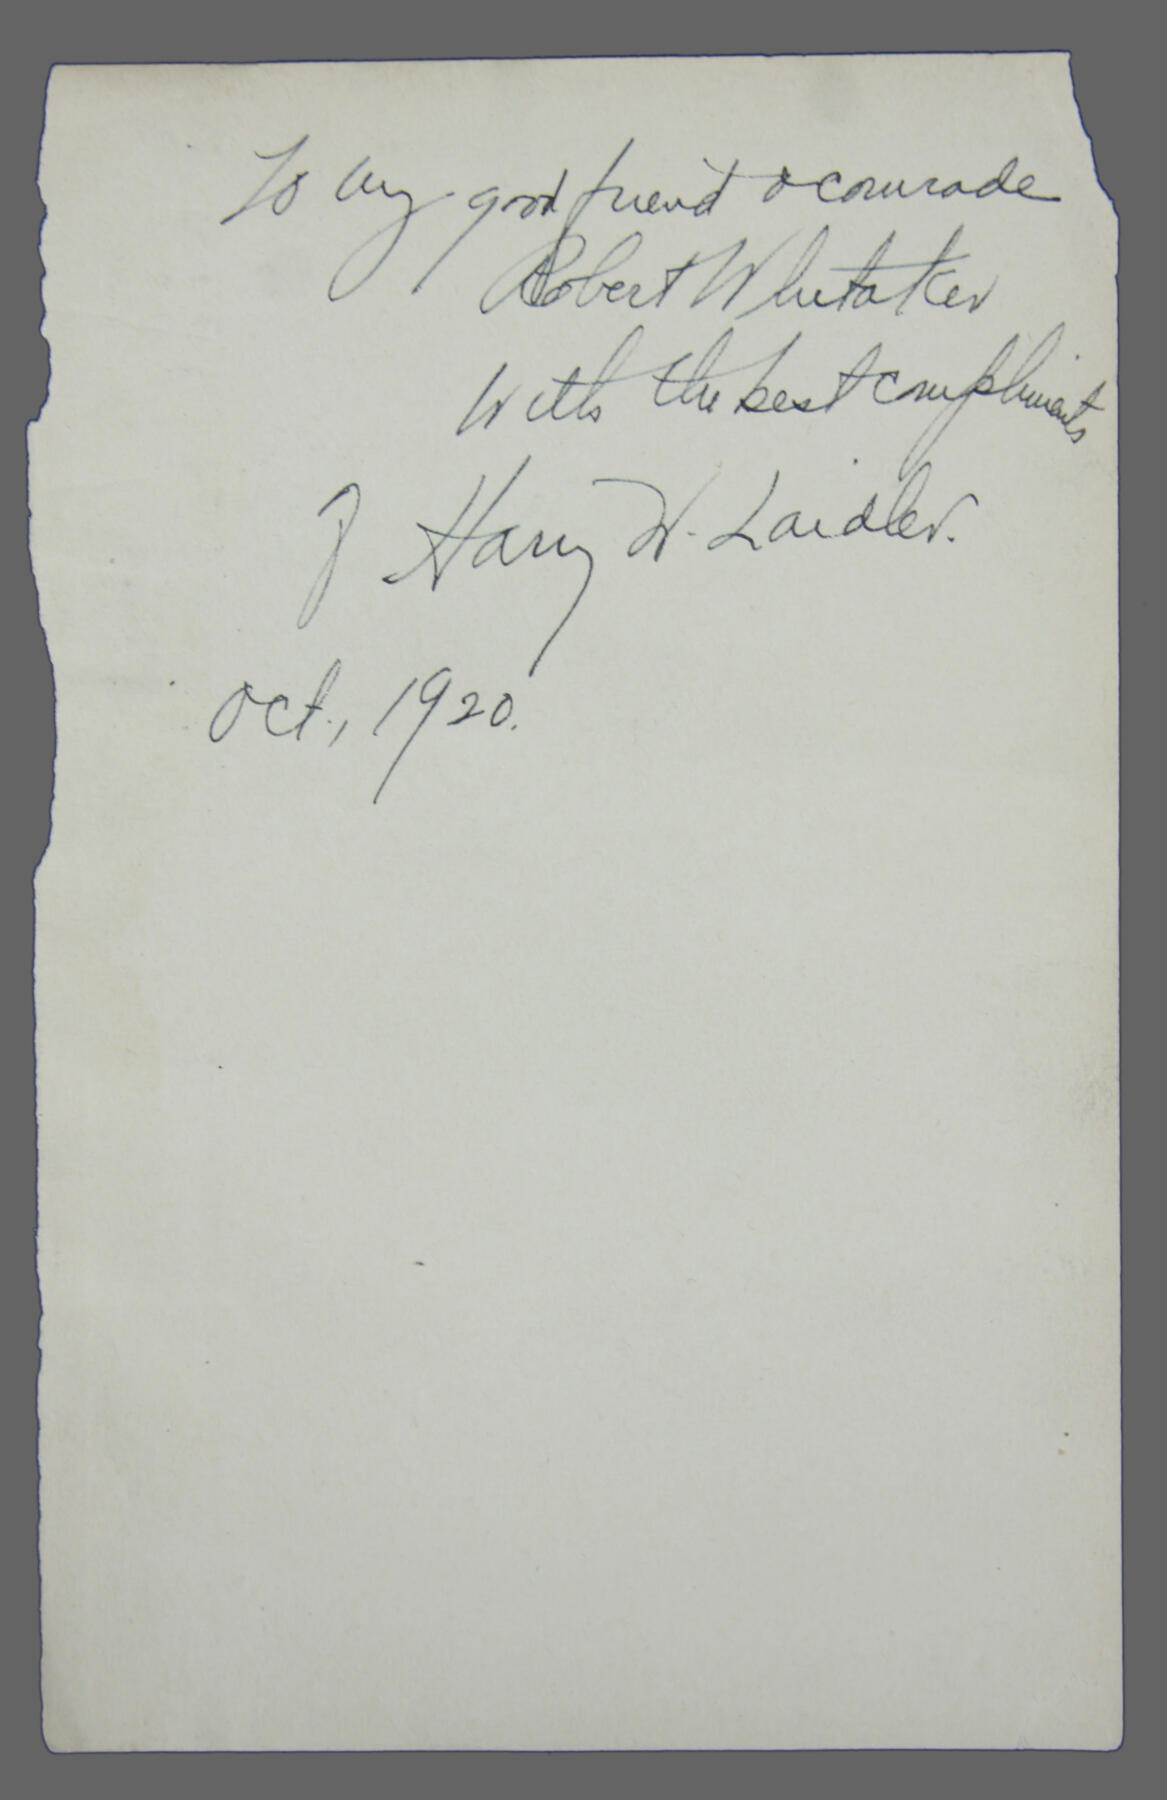 To my good friend & comrade
Robert Whitaker
With the best compliments
of Harry W. Laidler.
Oct., 1920.